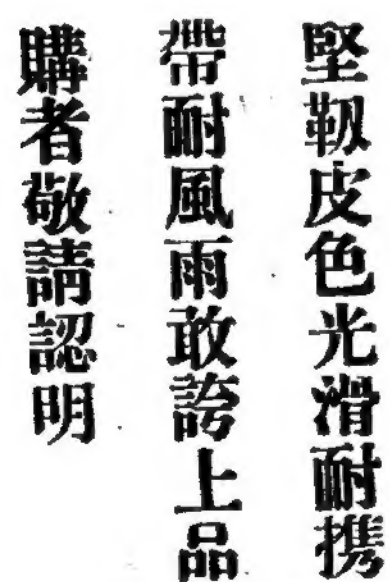 堅韌皮色光滑耐携
帶耐風雨敢誇上品
購者敬請認明